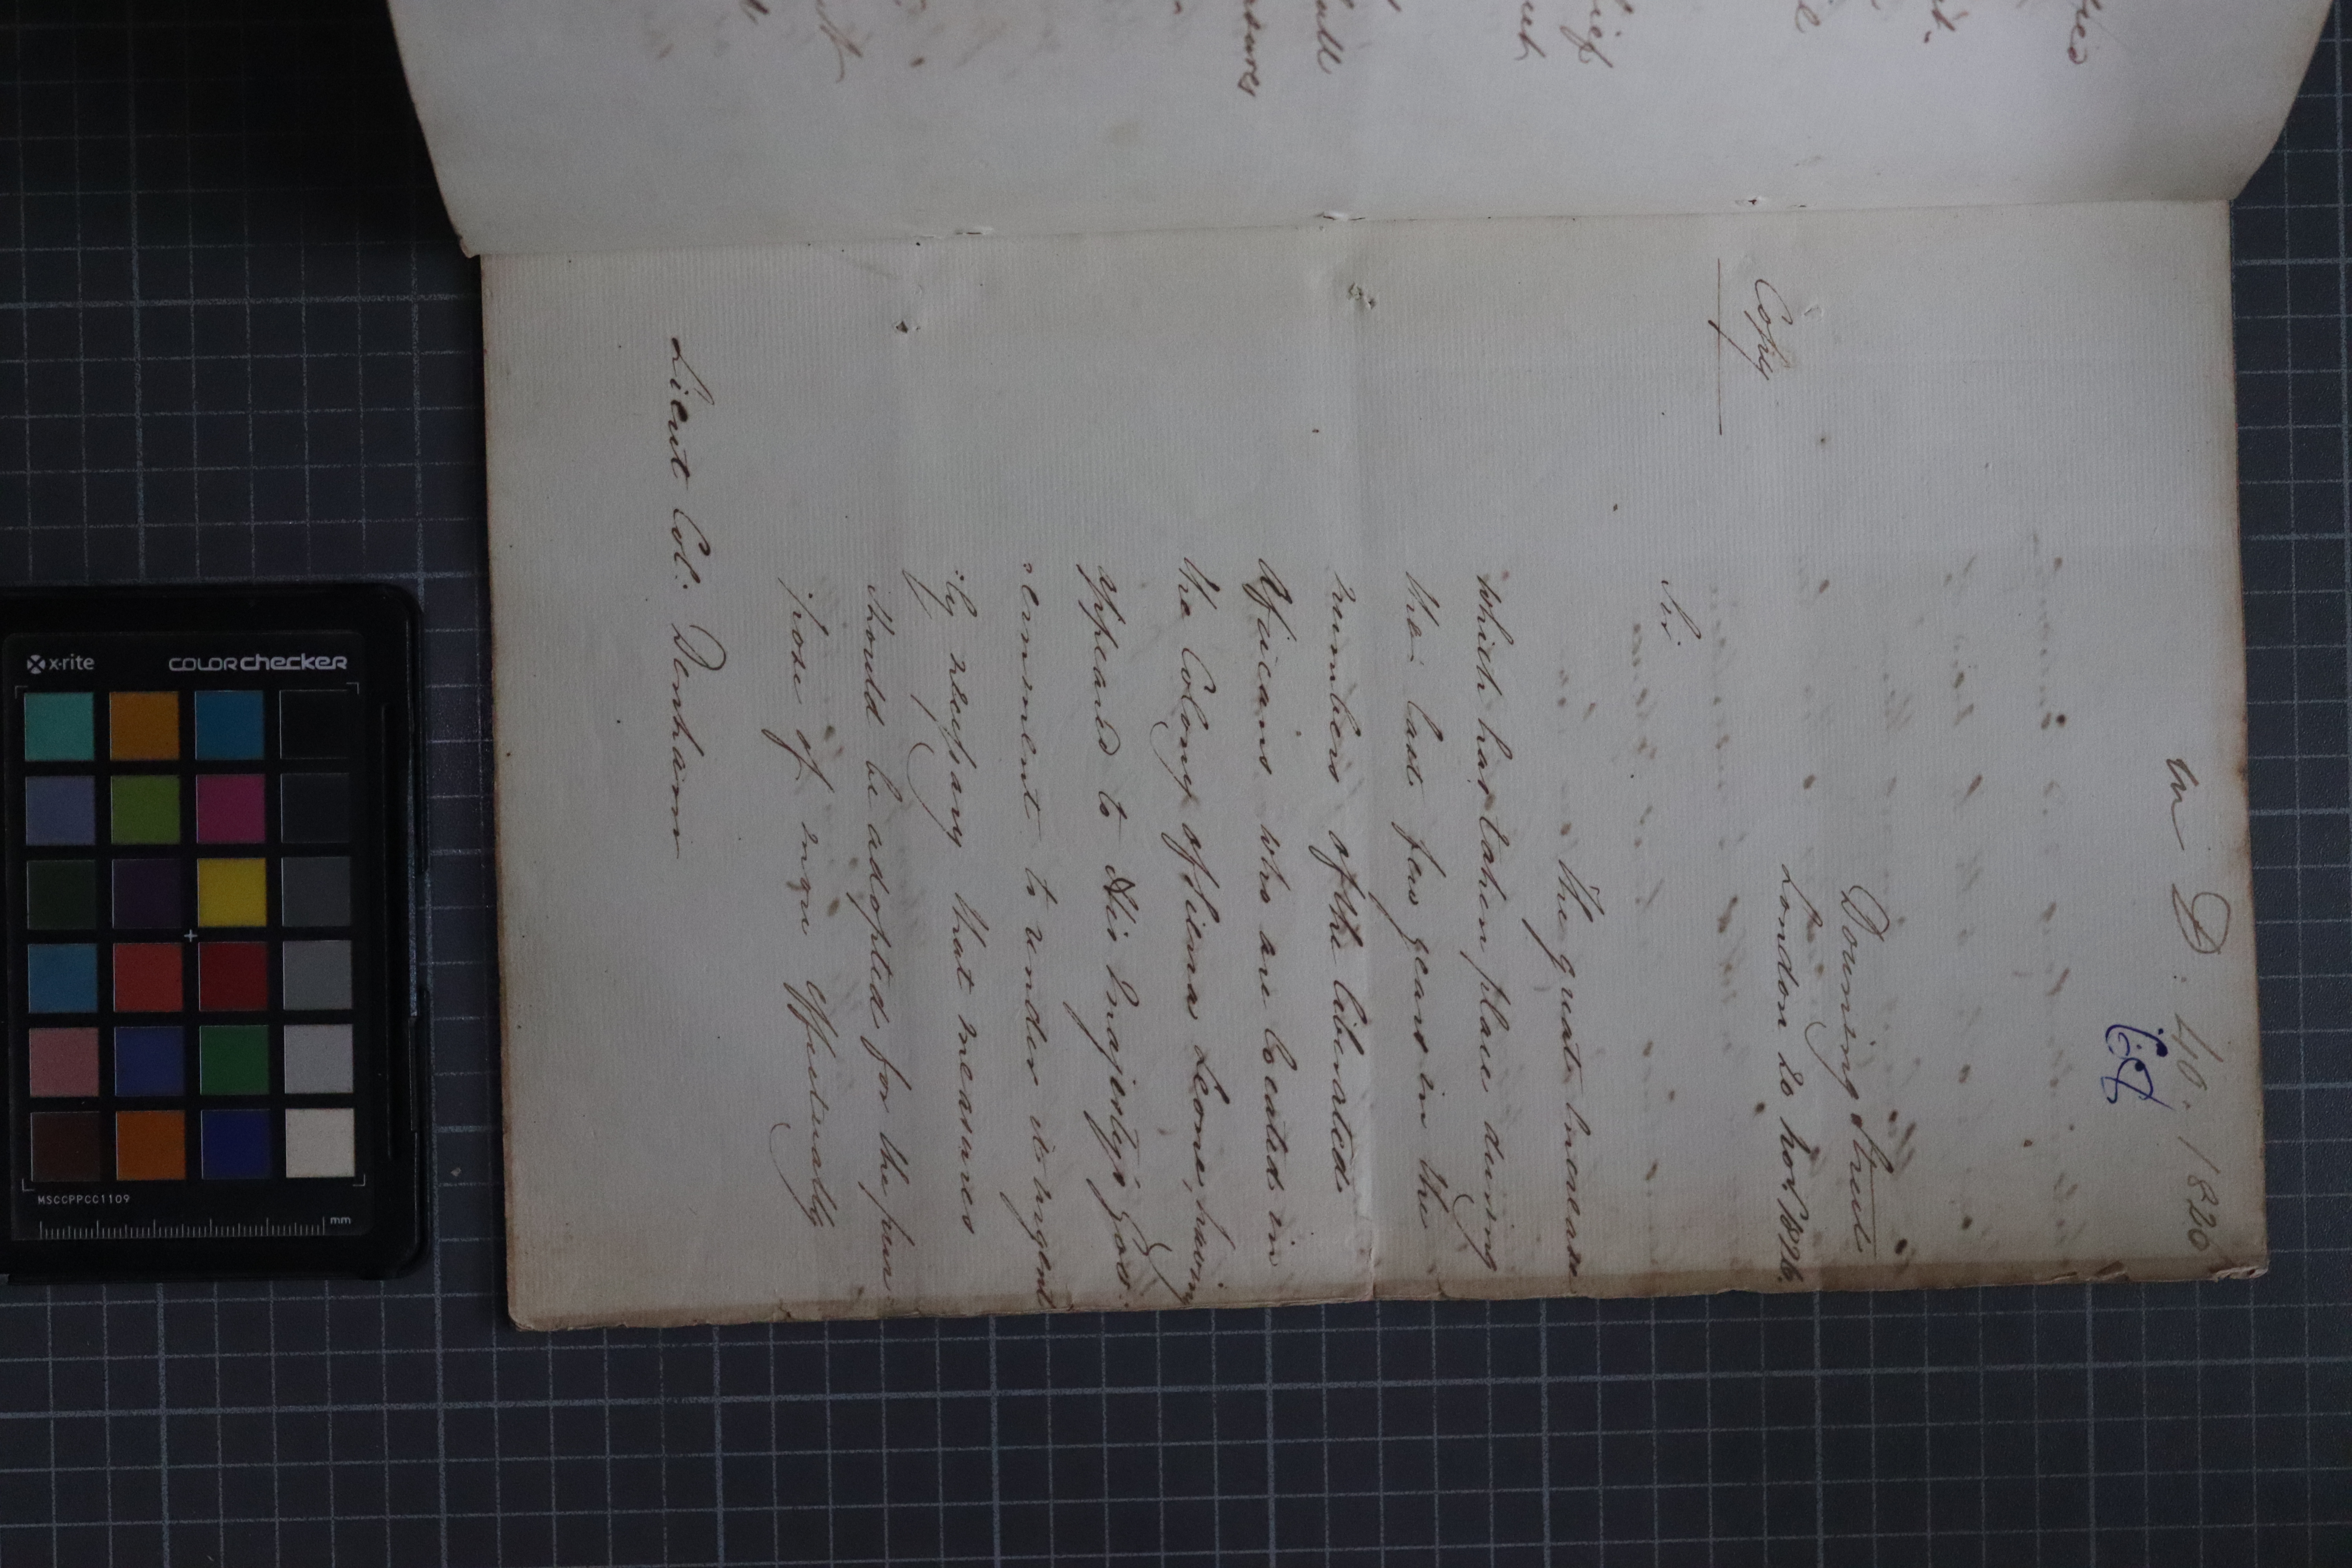 in D: 40. 1826
Downing Street
London 20 Nov 1826.
Copy
Sir.
The great increase
which has taken place during
the last few years in the
numbers of the liberated
Africans who are located in
the Colony of Sierra Leone, having
appeared to His Majesty's Gov:
:ernment to render it urgent
:ly necessary that measures
should be adopted for the pur
:pose of more effectually
Lieut Col: Denham
x-rite
colorchecker
MSCCPPCC1109
mm